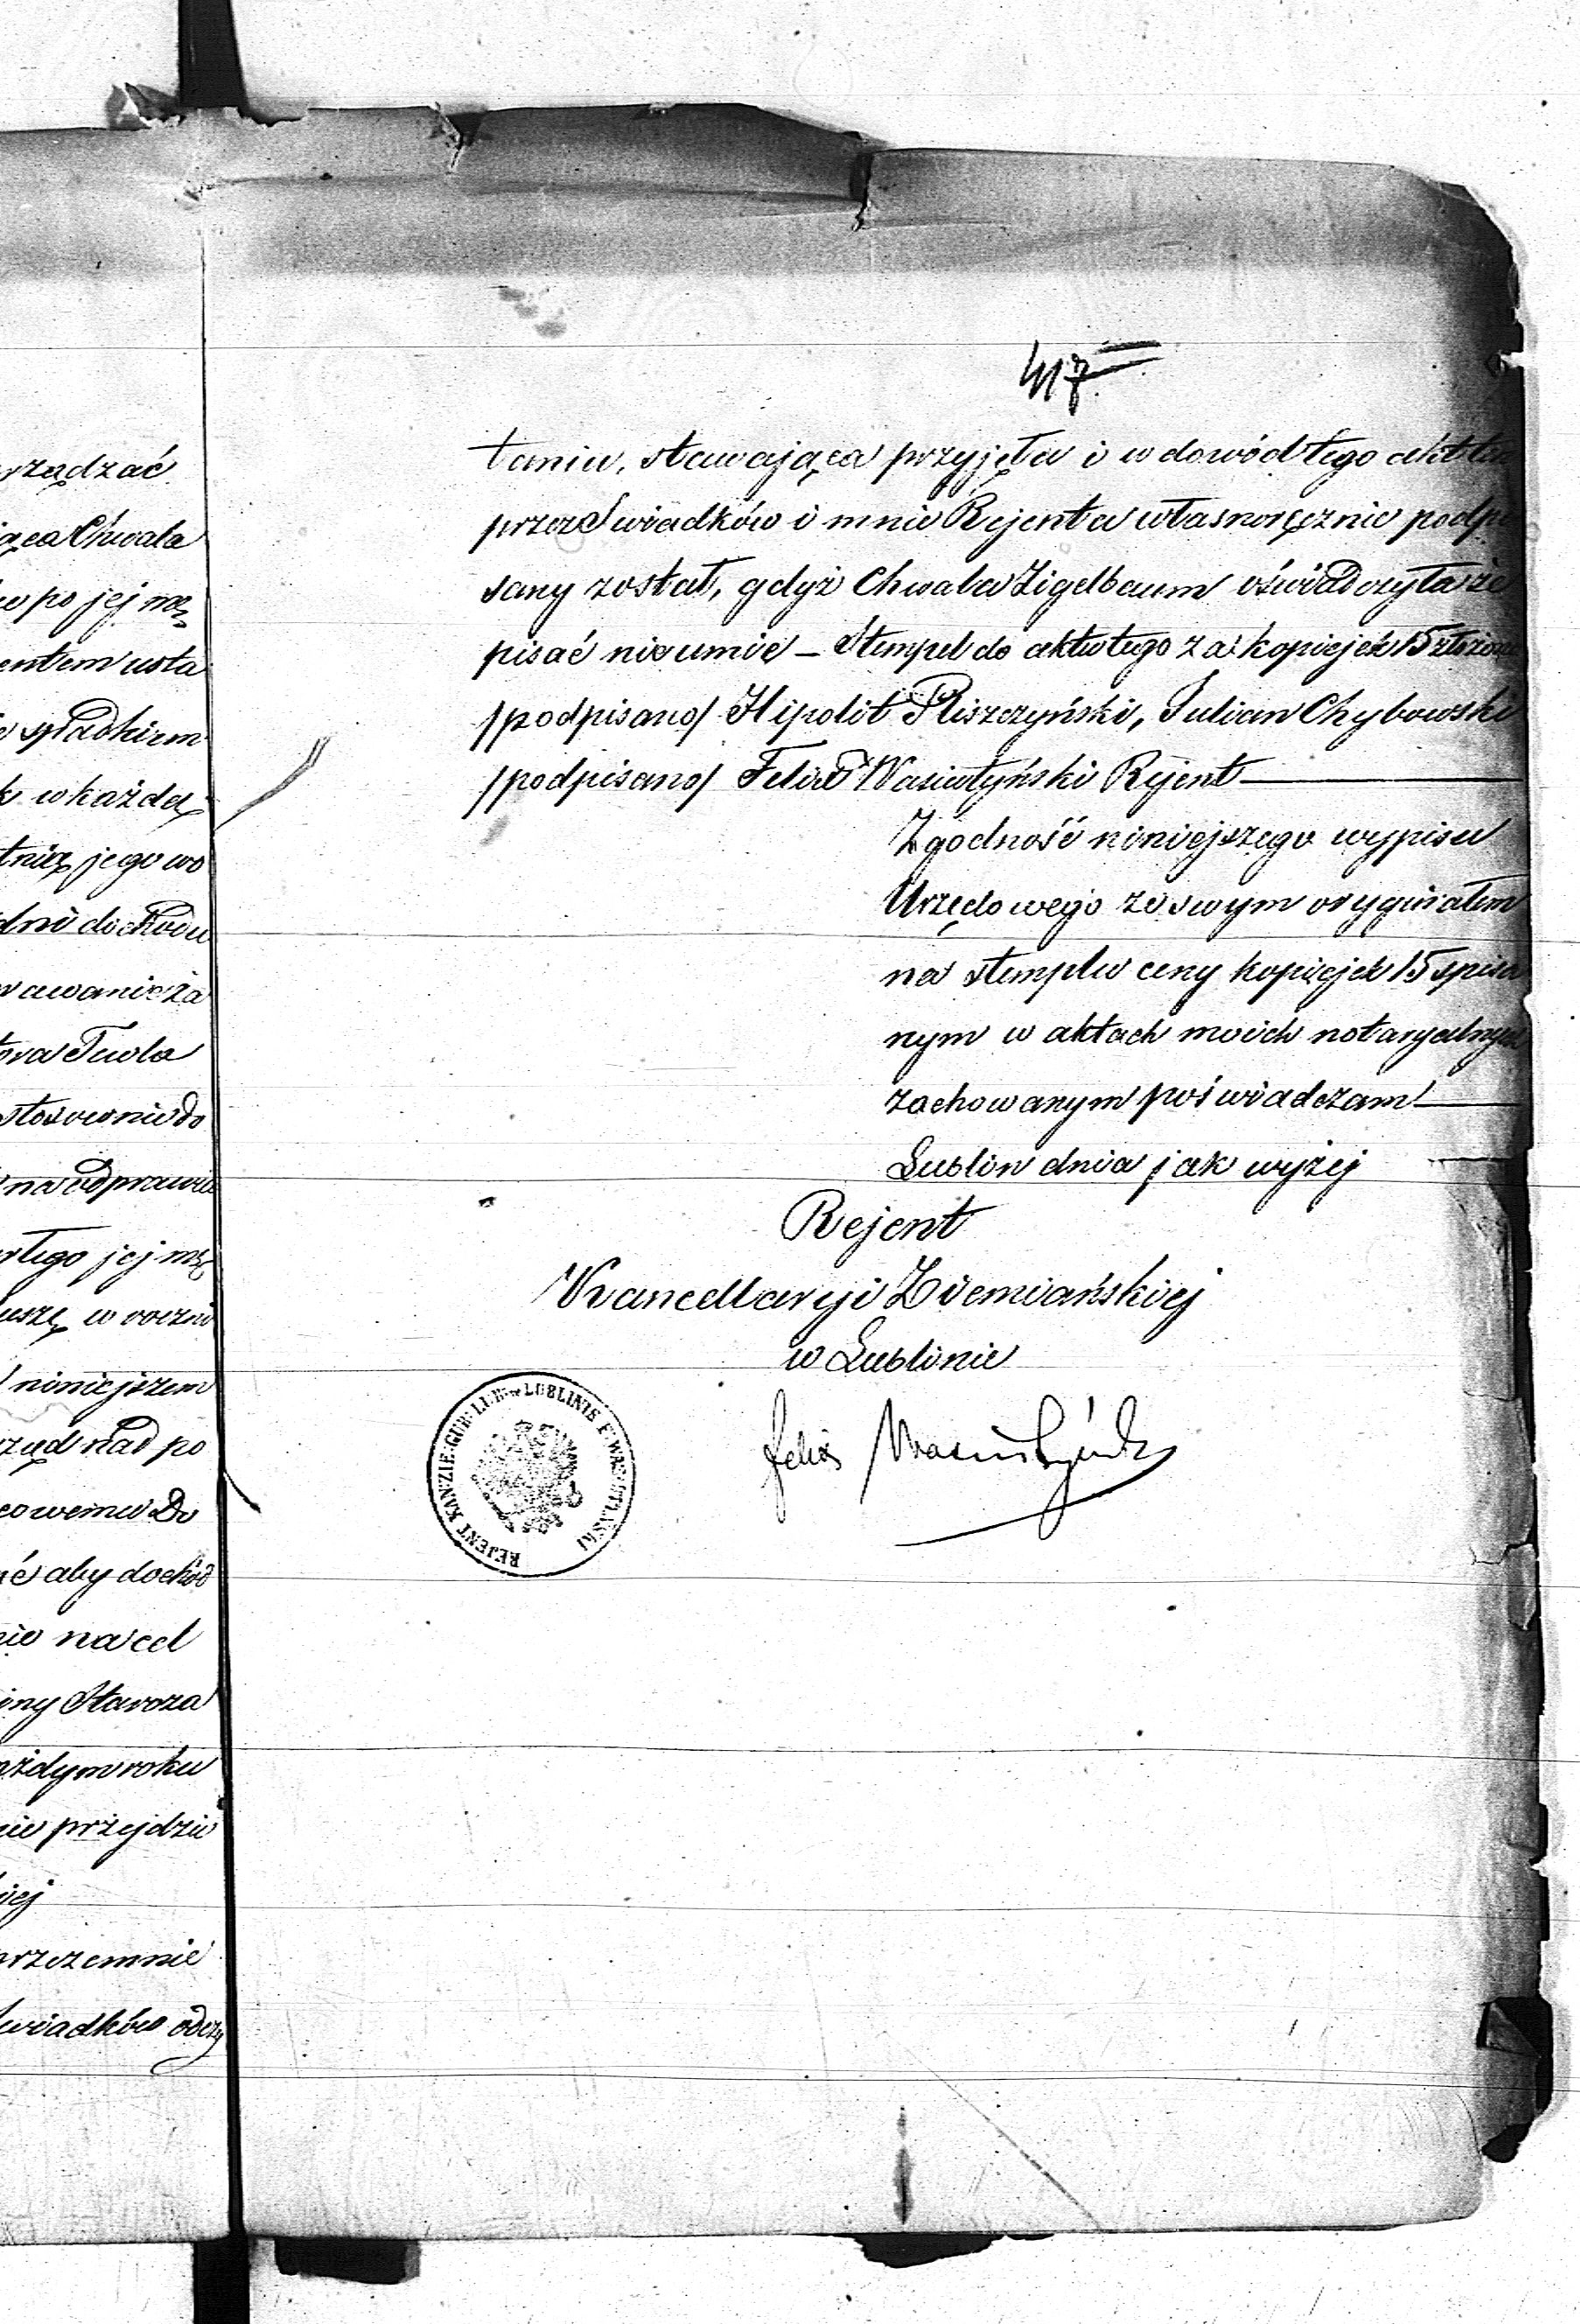 rządzać
jąca Chwala
po jej mę
entem usta
spadkiem
k w każdej
tnią jego wo
dni dochodu
awanie za
tora Tuwla
stosownie do
na odprawie
tego jej mę
uszę w roczni
niniejszem
rząd nad po
cowemu Do
ić aby dochód
nie na cel
iny Staroza
ażdym roku
nie przejdzie
kiej
przezemnie
świadków odczy
417.
taniu, stawająca przyjęła i w dowód tego akt ten
przez Świadków i mnie Rejenta własnoręcznie podpi
sany został, gdyż Chwala Zigelbaum oświadczyła że
pisać nie umie – Stempel do aktu tego za kopiejek 15 złożono
/podpisano/ Hipolit Pliszczyński, Julian Chybowski
/podpisano/ Felix Wasiutyński Rejent
Zgodność niniejszego wypisu
Urzędowego ze swym oryginałem
na stemplu ceny kopiejek 15 spisa
nym w aktach moich notaryalnych
zachowanym poświadczam
Lublin dnia jak wyżej
Rejent
Kancellaryi Ziemiańskiej
w Lublinie
Felix Wasiutyński
REJENT KAN: ZIE: GUB: LUB: w LUBLINIE F. WASIUTYŃSKI